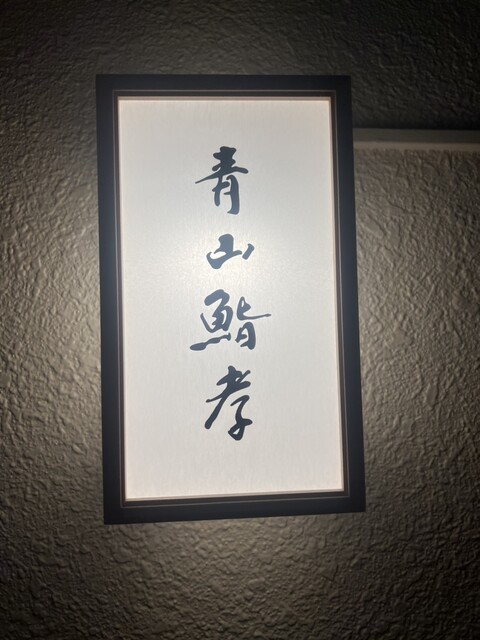 青山鮨孝